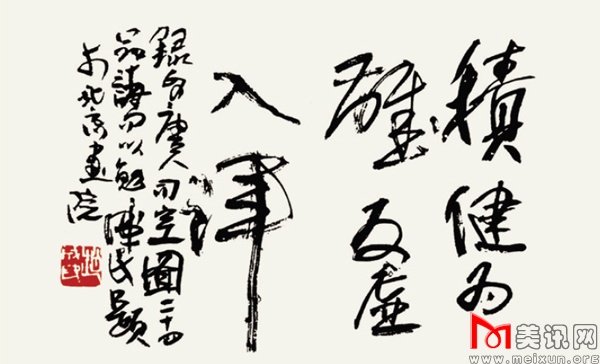 積健为
雄反虚
入渾
録自唐人司空圖二十四
品詩句以勉
于北京畫院
美讯网
www.meixun.org